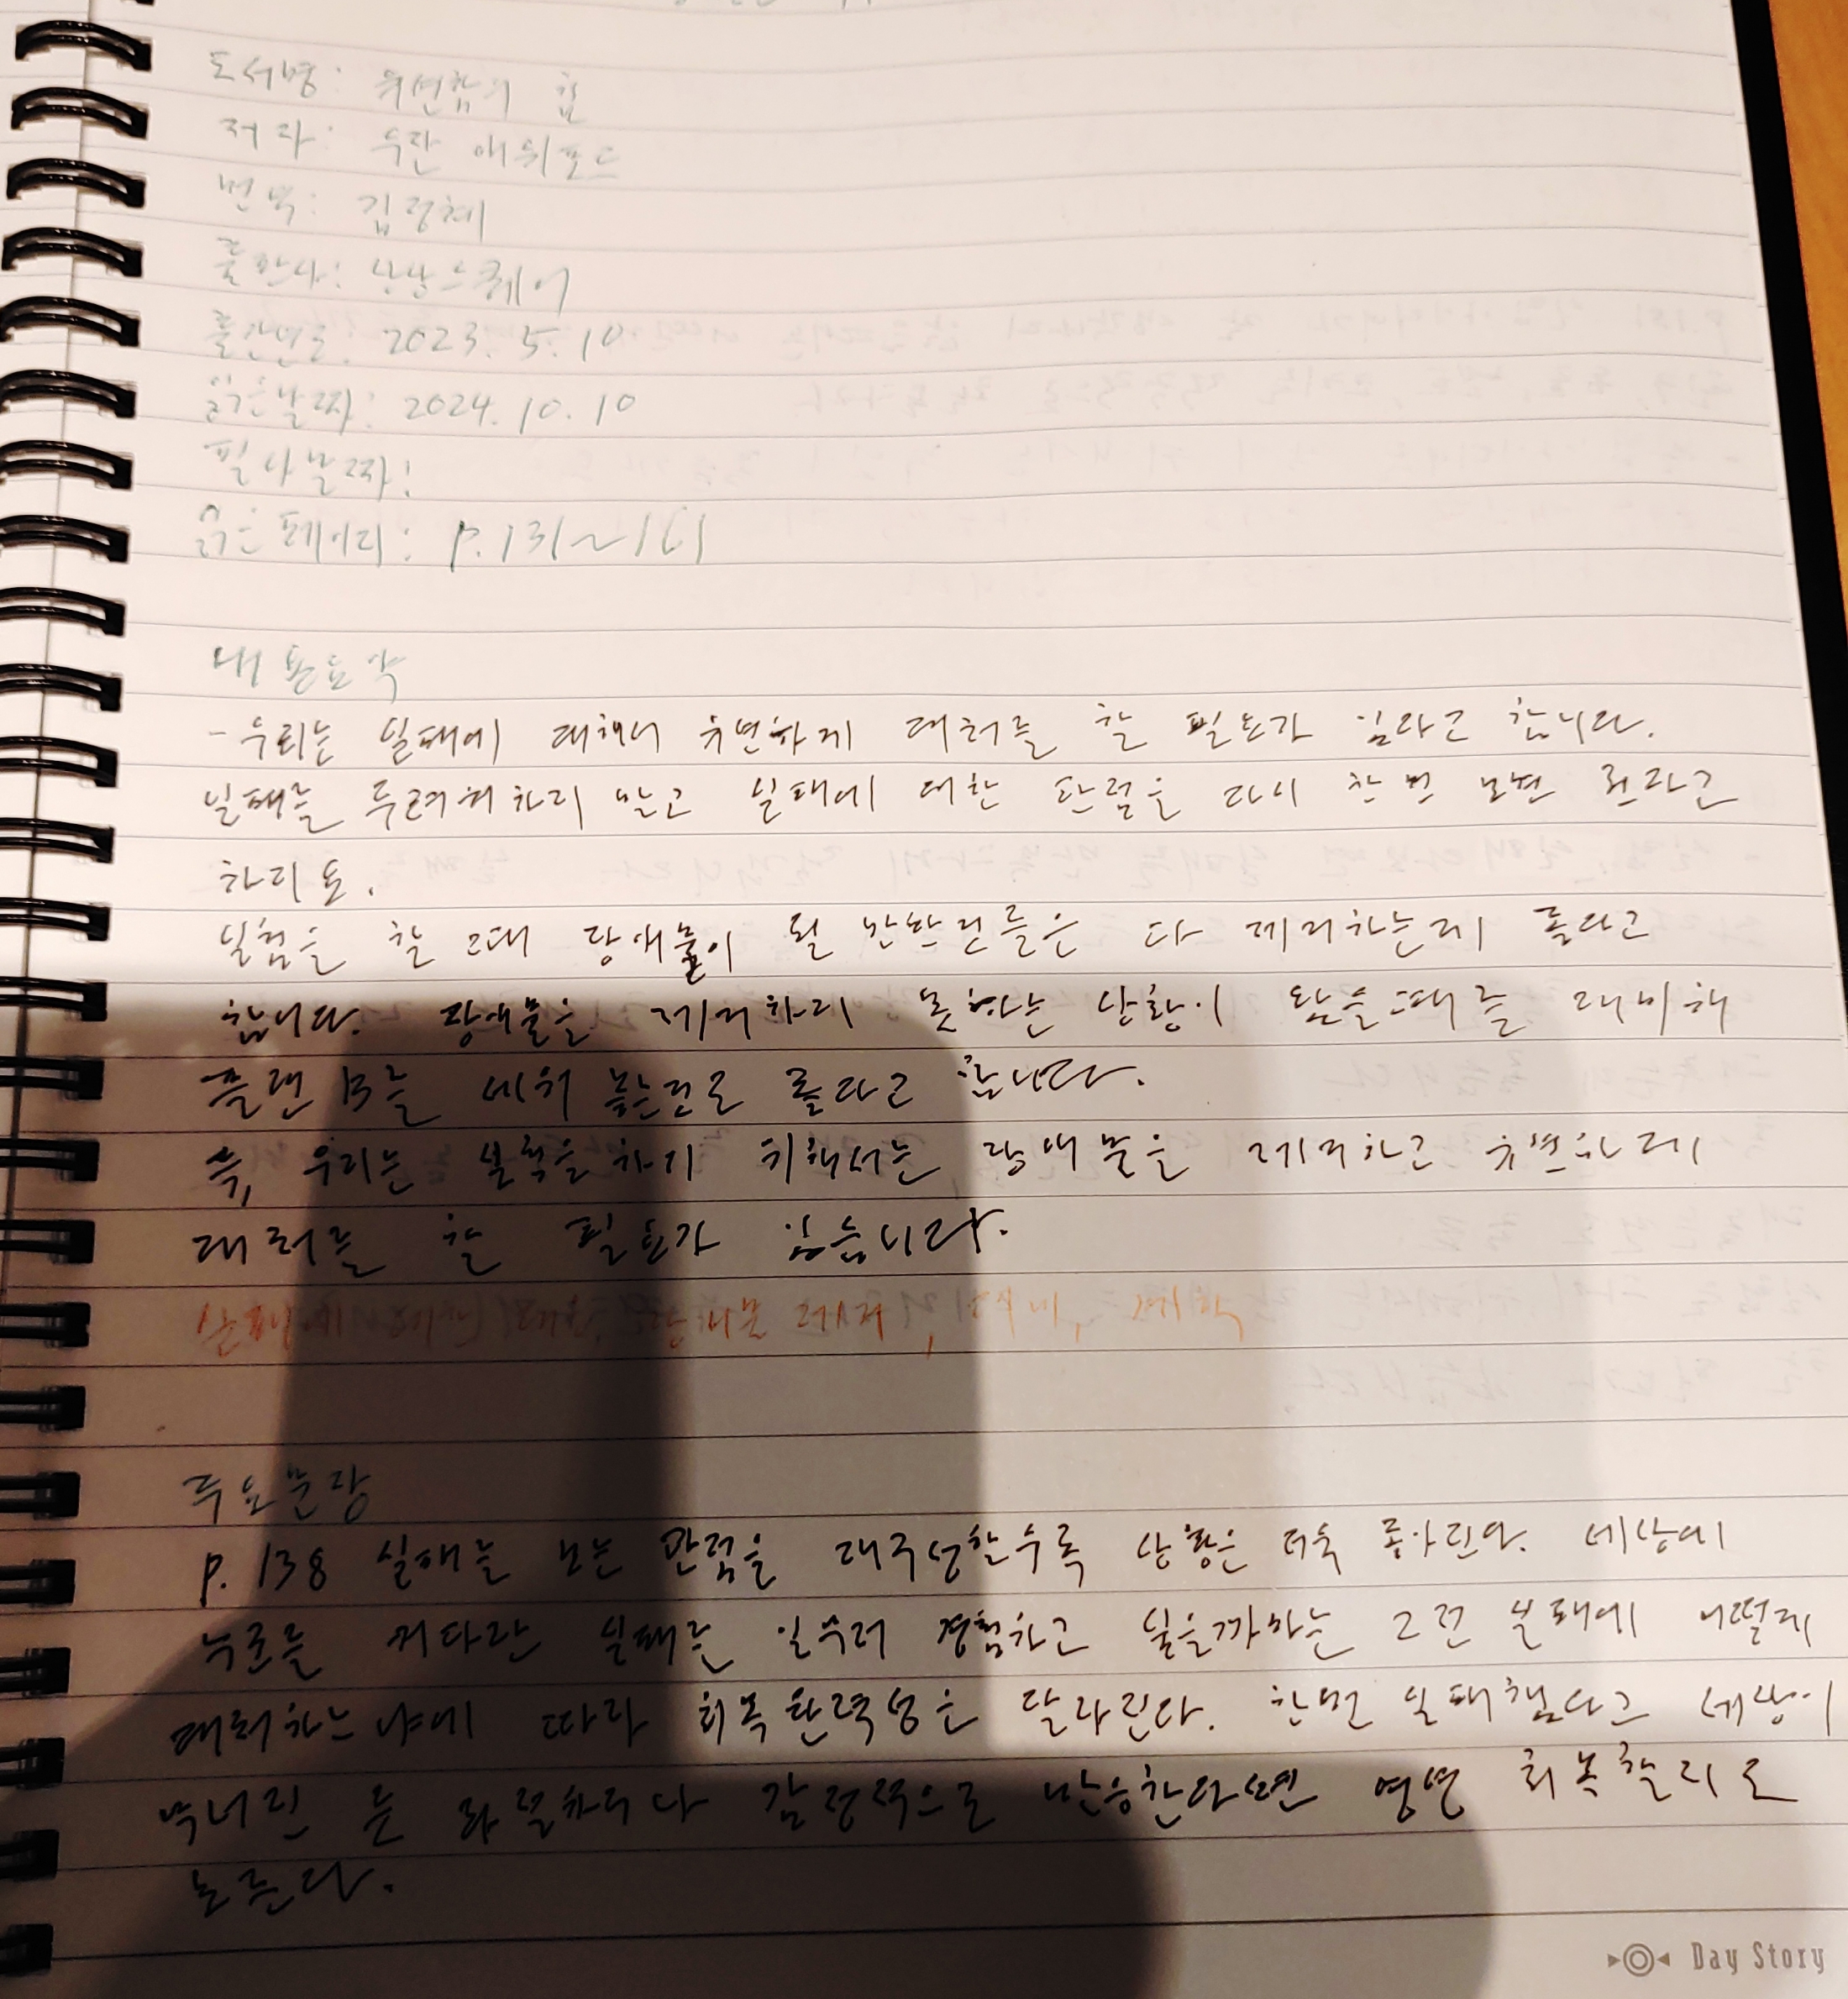 도서명: 유연함의 힘
저자: 수잔 애쉬포드
번역: 김정혜
출판사: 상상스퀘어
출간연도: 2023. 5. 10
읽은날짜: 2024. 10. 10
필사날짜:
읽은페이지: p.131~161
내용요약
-우리는 실패에 대해서 유연하게 대처를 할 필요가 있다고 합니다.
실패를 두려워하지 말고 실패에 대한 관점을 다시 한 번 보면 된다고
하지요.
실험을 할 때 장애물이 될 만한것들은 다 제거하는게 좋다고
합니다. 장애물을 제거하지 못하는 상황이 왔을때를 대비해
플랜 B를 세워 놓는것도 좋다고 합니다.
즉, 우리는 실험을 하기 위해서는 장애물을 제거하고 유연하게
대처를 할 필요가 있습니다.
장애물 제거, 계획
주요문장
p. 138 실패를 보는 관점을 재구성할수록 상황은 더욱 좋아진다. 세상에
누군들 커다란 실패를 일부러 경험하고 싶을까마는 그런 실패에 어떻게
대처하느냐에 따라 회복탄력성은 달라진다. 한번 실패했다고 세상이
무너진 듯 좌절하거나 감정적으로 반응한다면 영영 회복할지도
모른다.